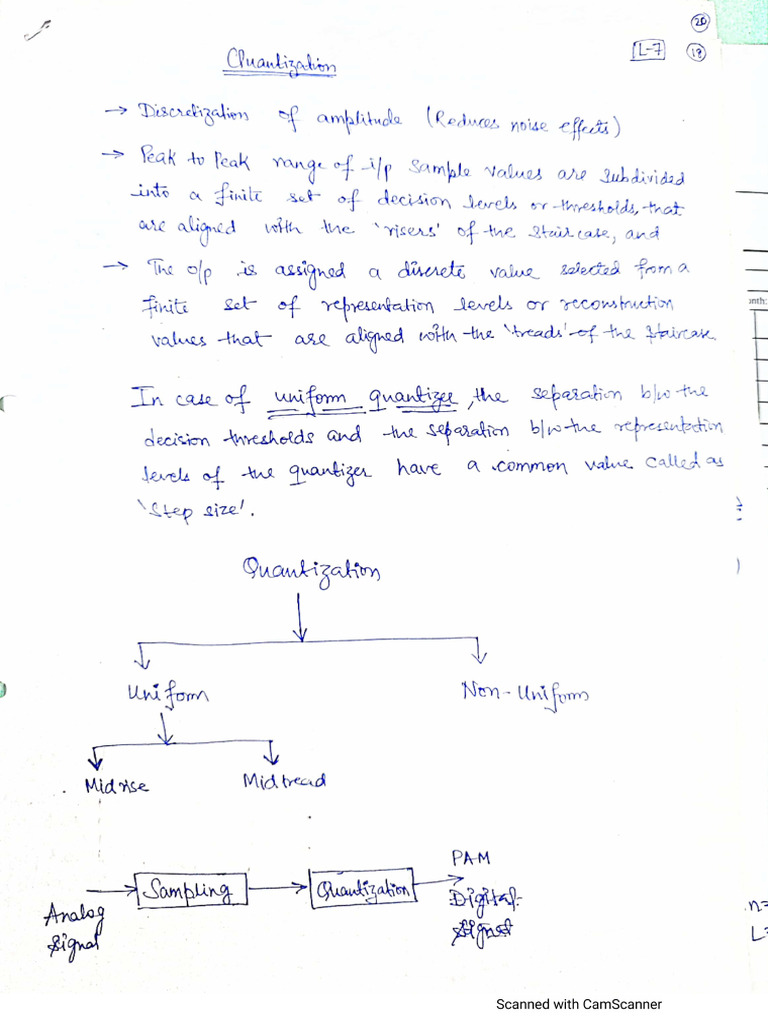 20
L-7
19
Quantization
→ Discretization of amplitude (Reduces noise effects)
→ Peak to Peak range of i/p sample values are subdivided
into a finite set of decision levels or thresholds, that
are aligned with the 'risers' of the staircase, and
→ The o/p is assigned a discrete value selected from a
finite set of representation levels or reconstruction
values that are aligned with the 'treads' of the staircase
In case of uniform quantizer, the separation b/w the
decision thresholds and the separation b/w the representation
levels of the quantizer have a common value called as
'step size'.
Quantization
Uniform Non-Uniform
Midrise Midtread
Analog
signal
Sampling
Quantization
PAM
Digital
signal
n=
L=
Scanned with CamScanner